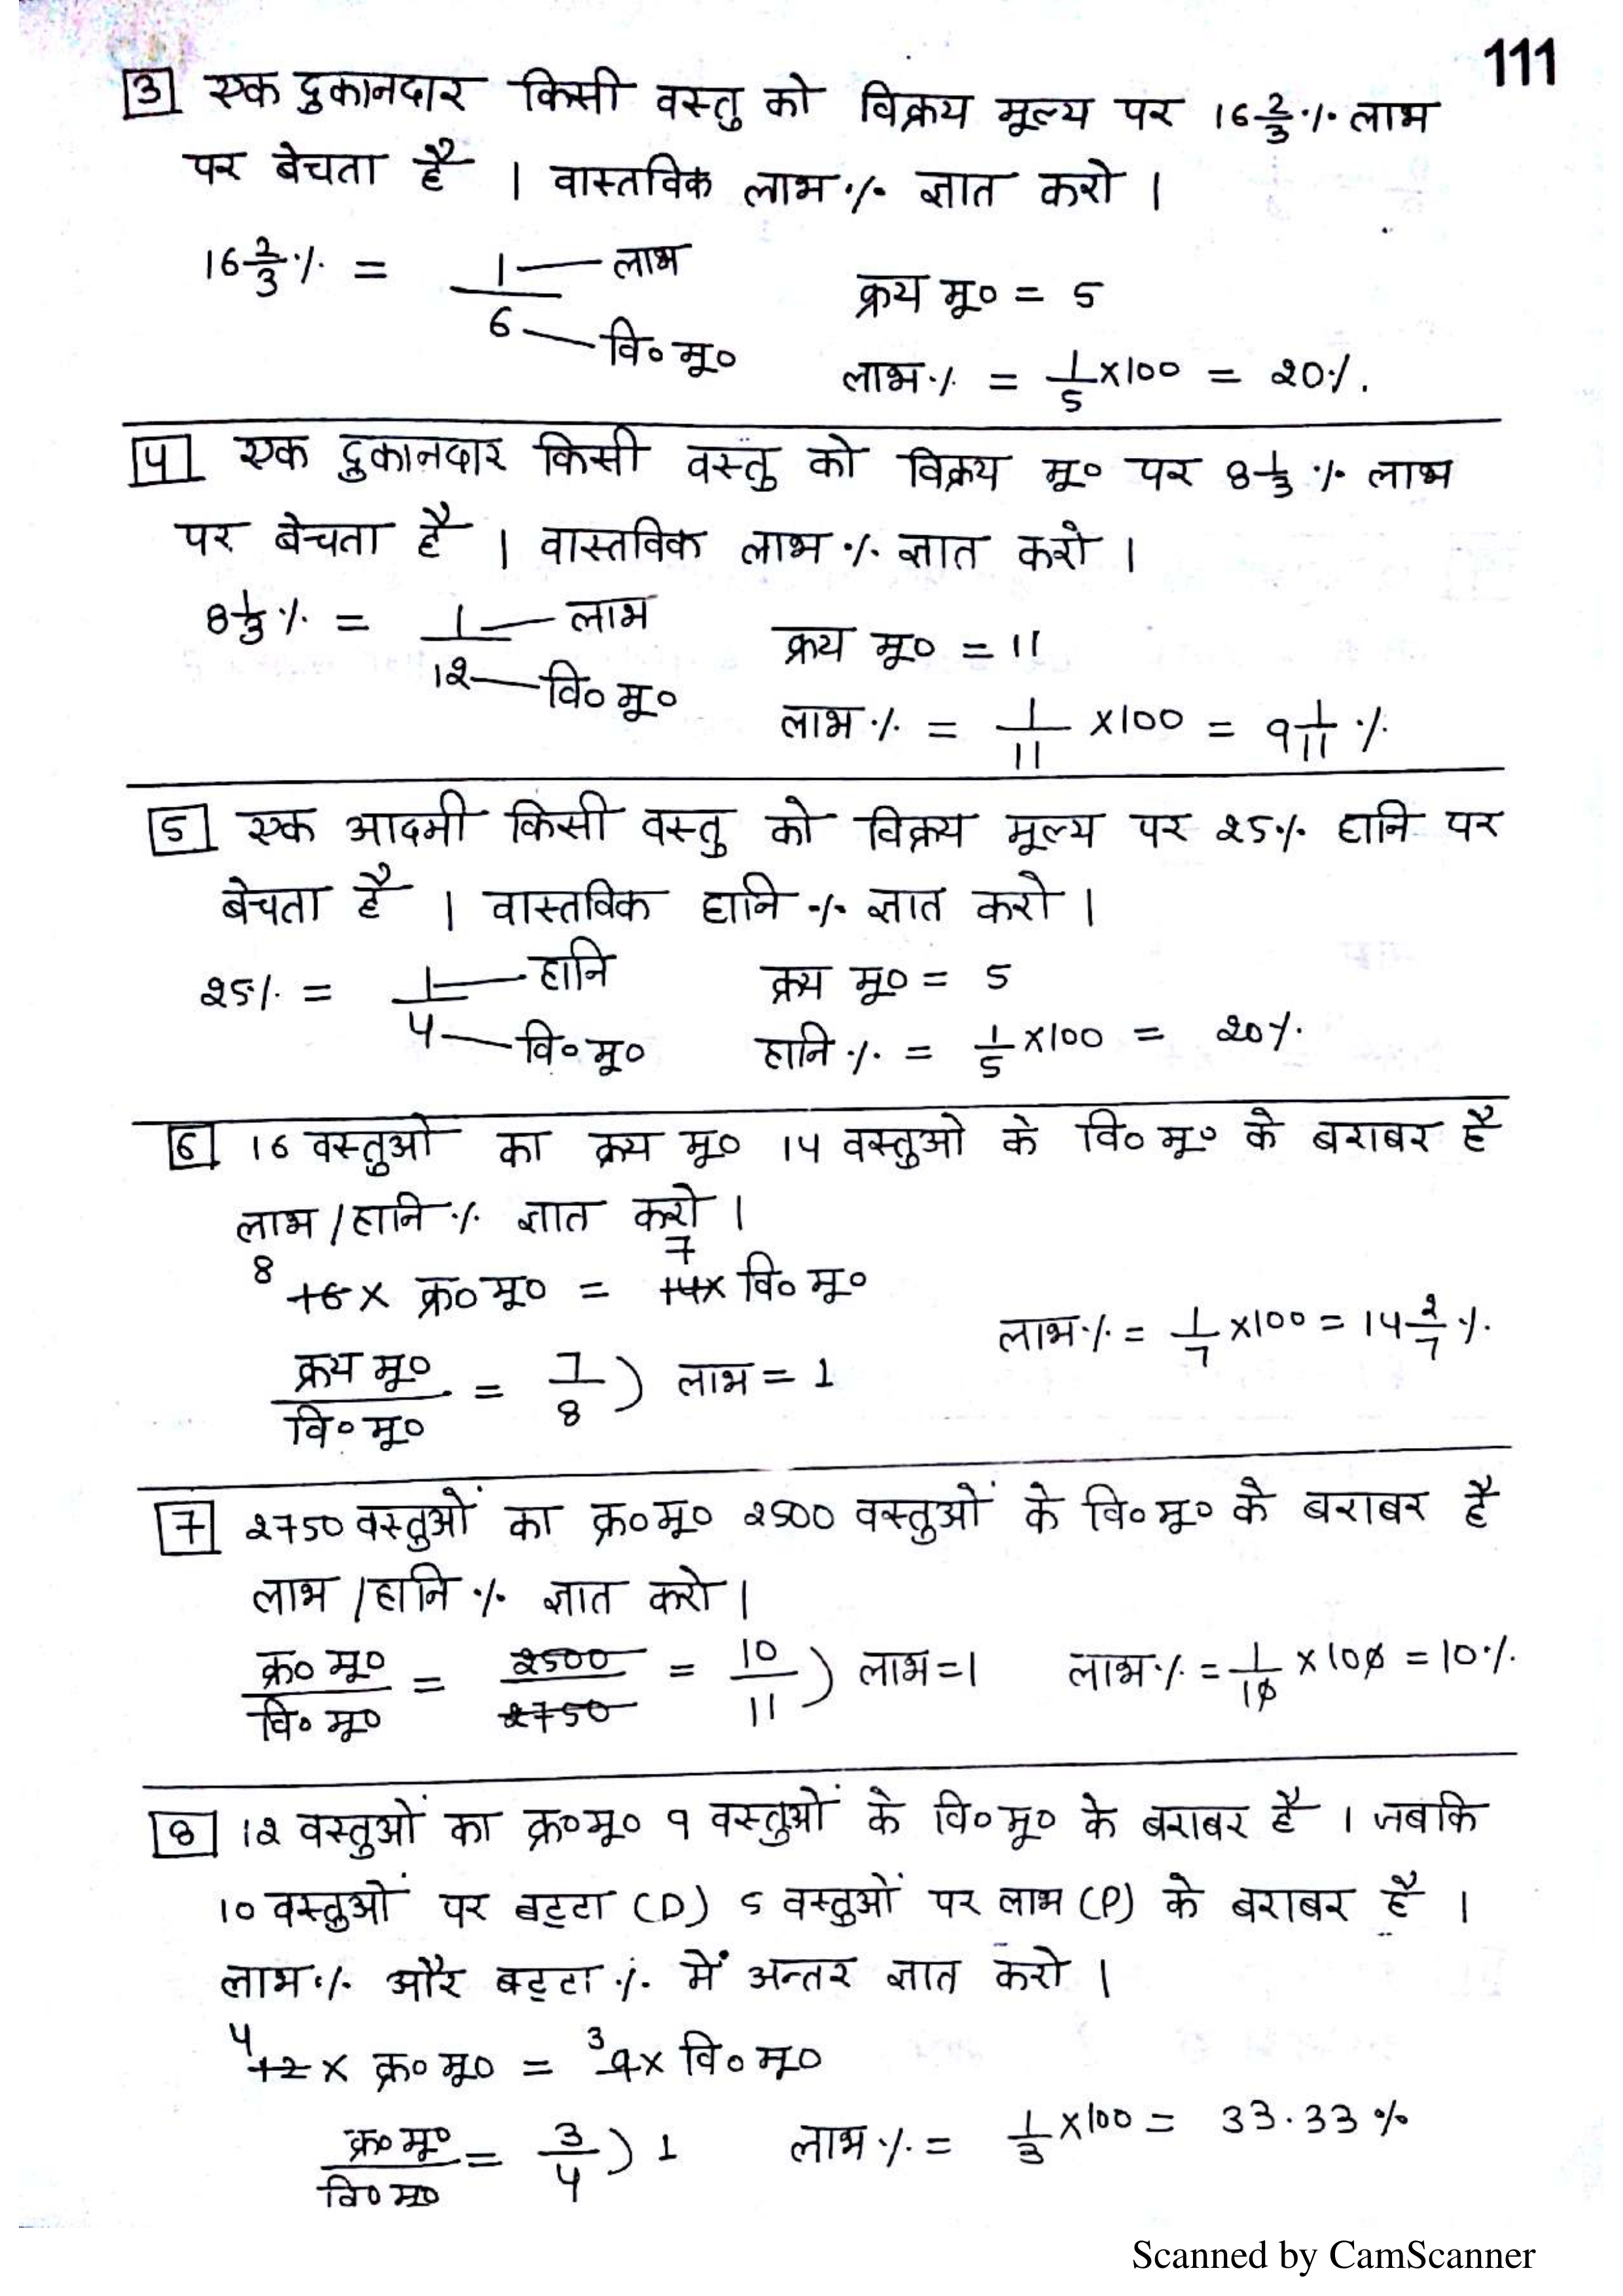 111
3 एक दुकानदार किसी वस्तु को विक्रय मूल्य पर 16 2/3 % लाभ
पर बेचता है । वास्तविक लाभ % ज्ञात करो ।
16 2/3 % = 1/6 — लाभ — वि० मू०
क्रय मू० = 5
लाभ % = 1/5 × 100 = 20%.
4 एक दुकानदार किसी वस्तु को विक्रय मू० पर 8 1/3 % लाभ
पर बेचता है । वास्तविक लाभ % ज्ञात करो ।
8 1/3 % = 1/12 — लाभ — वि० मू०
क्रय मू० = 11
लाभ % = 1/11 × 100 = 9 1/11 %
5 एक आदमी किसी वस्तु को विक्रय मूल्य पर 25% हानि पर
बेचता है । वास्तविक हानि % ज्ञात करो ।
25% = 1/4 — हानि — वि० मू०
क्रय मू० = 5
हानि % = 1/5 × 100 = 20%
6 16 वस्तुओ का क्रय मू० 14 वस्तुओ के वि० मू० के बराबर है
लाभ / हानि % ज्ञात करो ।
8 7
16 × क्र० मू० = 14 × वि० मू०
क्रय मू० / वि० मू० = 7/8 ) लाभ = 1
लाभ % = 1/7 × 100 = 14 2/7 %
7 2750 वस्तुओं का क्र० मू० 2500 वस्तुओं के वि० मू० के बराबर है
लाभ / हानि % ज्ञात करो ।
क्र० मू० / वि० मू० = 2500/2750 = 10/11 ) लाभ = 1 लाभ % = 1/10 × 100 = 10%
8 12 वस्तुओं का क्र० मू० 9 वस्तुओं के वि० मू० के बराबर है । जबकि
10 वस्तुओं पर बट्टा (D) 5 वस्तुओं पर लाभ (P) के बराबर है ।
लाभ % और बट्टा % में अन्तर ज्ञात करो ।
4 3
12 × क्र० मू० = 9 × वि० मू०
क्र० मू० / वि० मू० = 3/4 ) 1 लाभ % = 1/3 × 100 = 33.33 %
Scanned by CamScanner